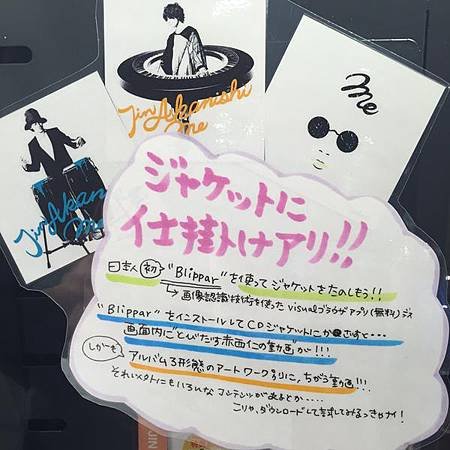 Jin Akanishi
Me
Jin Akan
Me
me
ジャケットに
仕掛けアリ!!
日本人初 "Blippar"を使ってジャケットをたのしもう!!
→画像認識技術を使ったvisualブラウザアプリ(無料)
"Blippar"をインストールしてCDジャケットにかざすと…
画面内に"とびだす赤西仁の動画"が!!!
しかも アルバム3形態のアートワーク別に、ちがう動画!!!
それイメタトにもいろいろなコンテンツが
こりゃ、ダウンロードして試してみるっきゃナイ!
JIN